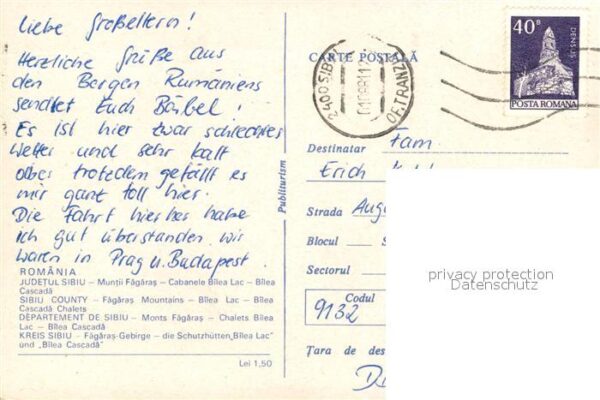 Liebe Großeltern!
Herzliche Grüße aus
den Bergen Rumäniens
sendtet Euch Bärbel!
Es ist hier zwar schlechtes
Wetter und sehr kalt
aber trotzdem gefällt es
mir ganz toll hier.
Die Fahrt hierher habe
ich gut überstanden. wir
waren in Prag u. Budapest.
ROMÂNIA
JUDEȚUL SIBIU – Munții Făgăraș – Cabanele Bîlea Lac – Bîlea
Cascadă
SIBIU COUNTY – Făgăraș Mountains – Bîlea Lac – Bîlea
Cascadă Chalets
DÉPARTEMENT DE SIBIU – Monts Făgăraș – Chalets Bîlea
Lac – Bîlea Cascadă
KREIS SIBIU – Făgăraș-Gebirge – die Schutzhütten „Bîlea Lac"
und „Bîlea Cascadă"
Lei 1,50
Publiturism
CARTE POȘTALĂ
2400 SIBIU
OF. TRANZIT
40B
DENSUȘ
POSTA ROMANA
Destinatar Fam.
Erich
Strada Aug
Blocul
Sectorul
Codul
9132
Țara de des
privacy protection
Datenschutz